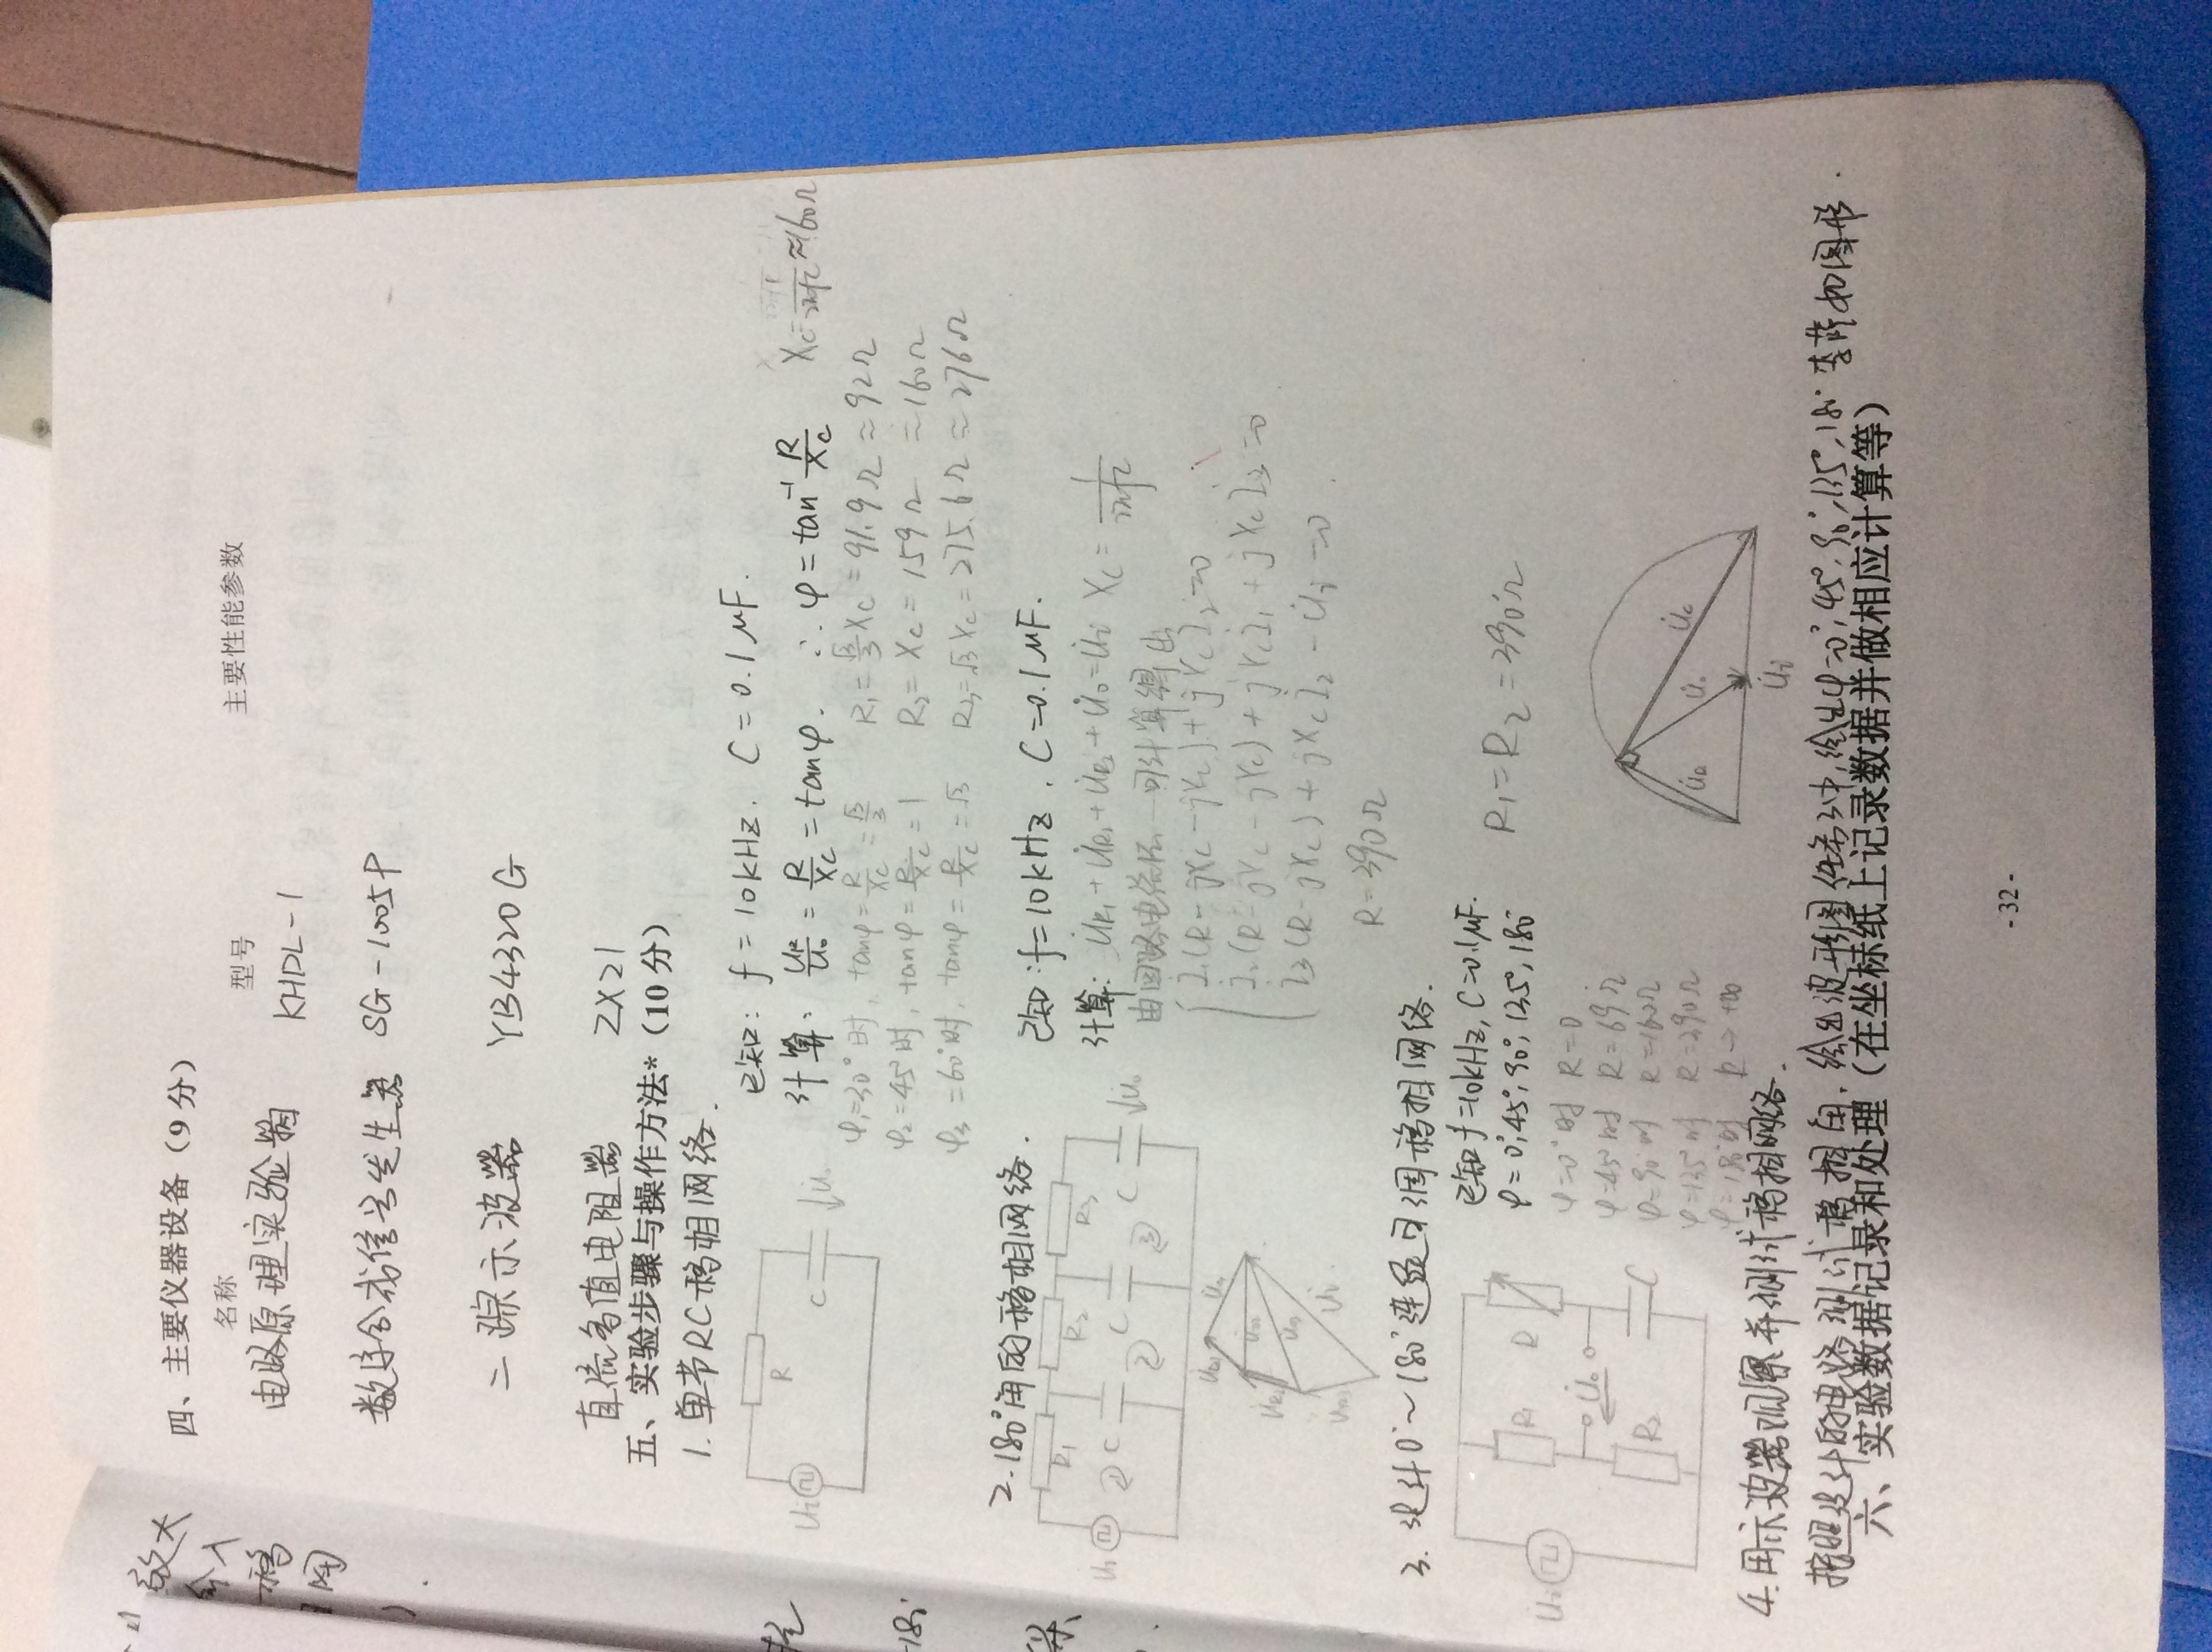 放大
介入
移
网
四、主要仪器设备（9 分）
名称 型号 主要性能参数
电路原理实验箱 KHDL-1
数字合成信号发生器 SG-1005P
二踪示波器 YB4320G
直流多值电阻器 ZX21
五、实验步骤与操作方法*（10 分）
1. 单节RC移相网络.
R
U̇i C U̇o
已知: f=10kHz. C=0.1μF.
计算: UR/Uo = R/XC = tanφ. ∴ φ=tan⁻¹ R/XC XC=1/2πfC≈160Ω
φ1=30°时, tanφ=R/XC=√3/3 R1=√3/3 XC=91.9Ω≈92Ω
φ2=45°时, tanφ=R/XC=1 R2=XC=159Ω≈160Ω
φ3=60°时, tanφ=R/XC=√3 R3=√3 XC=275.6Ω≈276Ω
2. 180°角的移相网络.
R1 R2 R3
U̇i ① C ② C ③ C U̇o
已知: f=10kHz, C=0.1μF.
计算: U̇R1+U̇R1+U̇R2+U̇o=U̇i XC=1/2πfC
由回路电流法 可计算得出
İ1(R-jXC-jXC)+jXCİ2=0
İ2(R-jXC-jXC)+jXCİ1+jXCİ3=0
İ3(R-jXC)+jXCİ2-U̇i=0.
R=390Ω
U̇i
3. 设计0°~180°连续可调移相网络.
已知f=10kHz, C=0.1μF.
φ=0°,45°,90°,135°,180°
R1=R2=390Ω
U̇i R1 R U̇o R2 C
φ=0°时 R=0
φ=45°时 R=69Ω
φ=90°时 R=160Ω
φ=135°时 R=390Ω
φ=180°时 R→+∞
U̇R U̇o U̇C
U̇i
4. 用示波器观察并测试移相网络.
按照设计的电路测试移相角, 绘出波形图 任务3中, 绘出φ=0°,45°,90°,135°,180°李萨如图形.
六、实验数据记录和处理（在坐标纸上记录数据并做相应计算等）
- 32 -